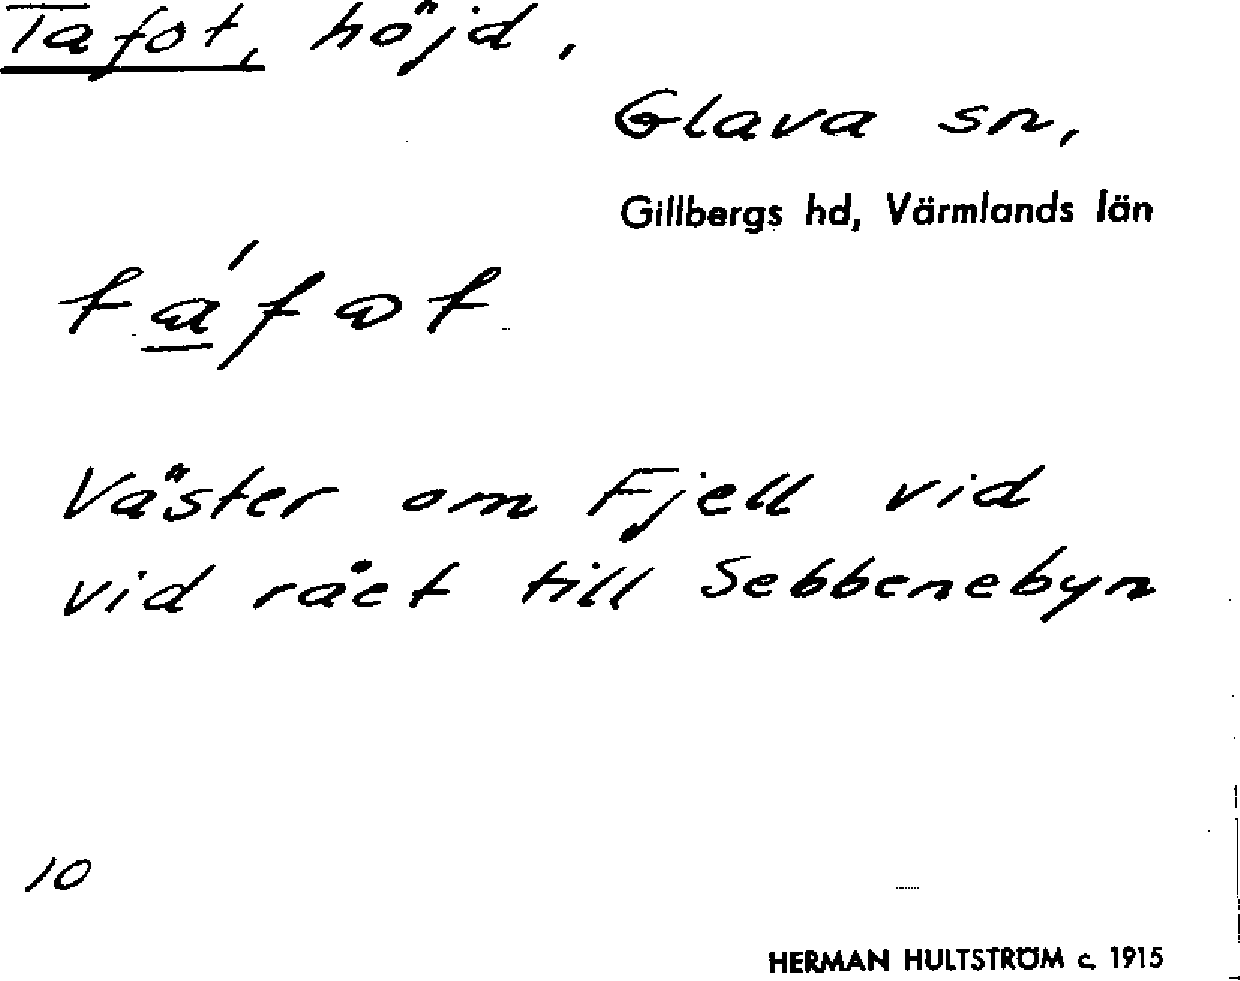 Tafot, höjd,
Glava sn,
Gillbergs hd, Värmlands län
Väster om Fjell vid
vid rået till Sebbenebyn
10
HERMAN HULTSTRÖM c. 1915